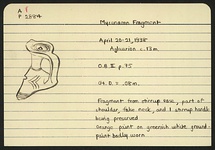 A
P 2584
Mycenaean Fragment
April 20-21, 1938
O.B. II p. 75
Gt. D. = .08m.
Fragment from stirrup vase, part of
shoulder, false neck, and 1 stirrup handle
being preserved
Orange paint on greenish white ground
paint badly worn